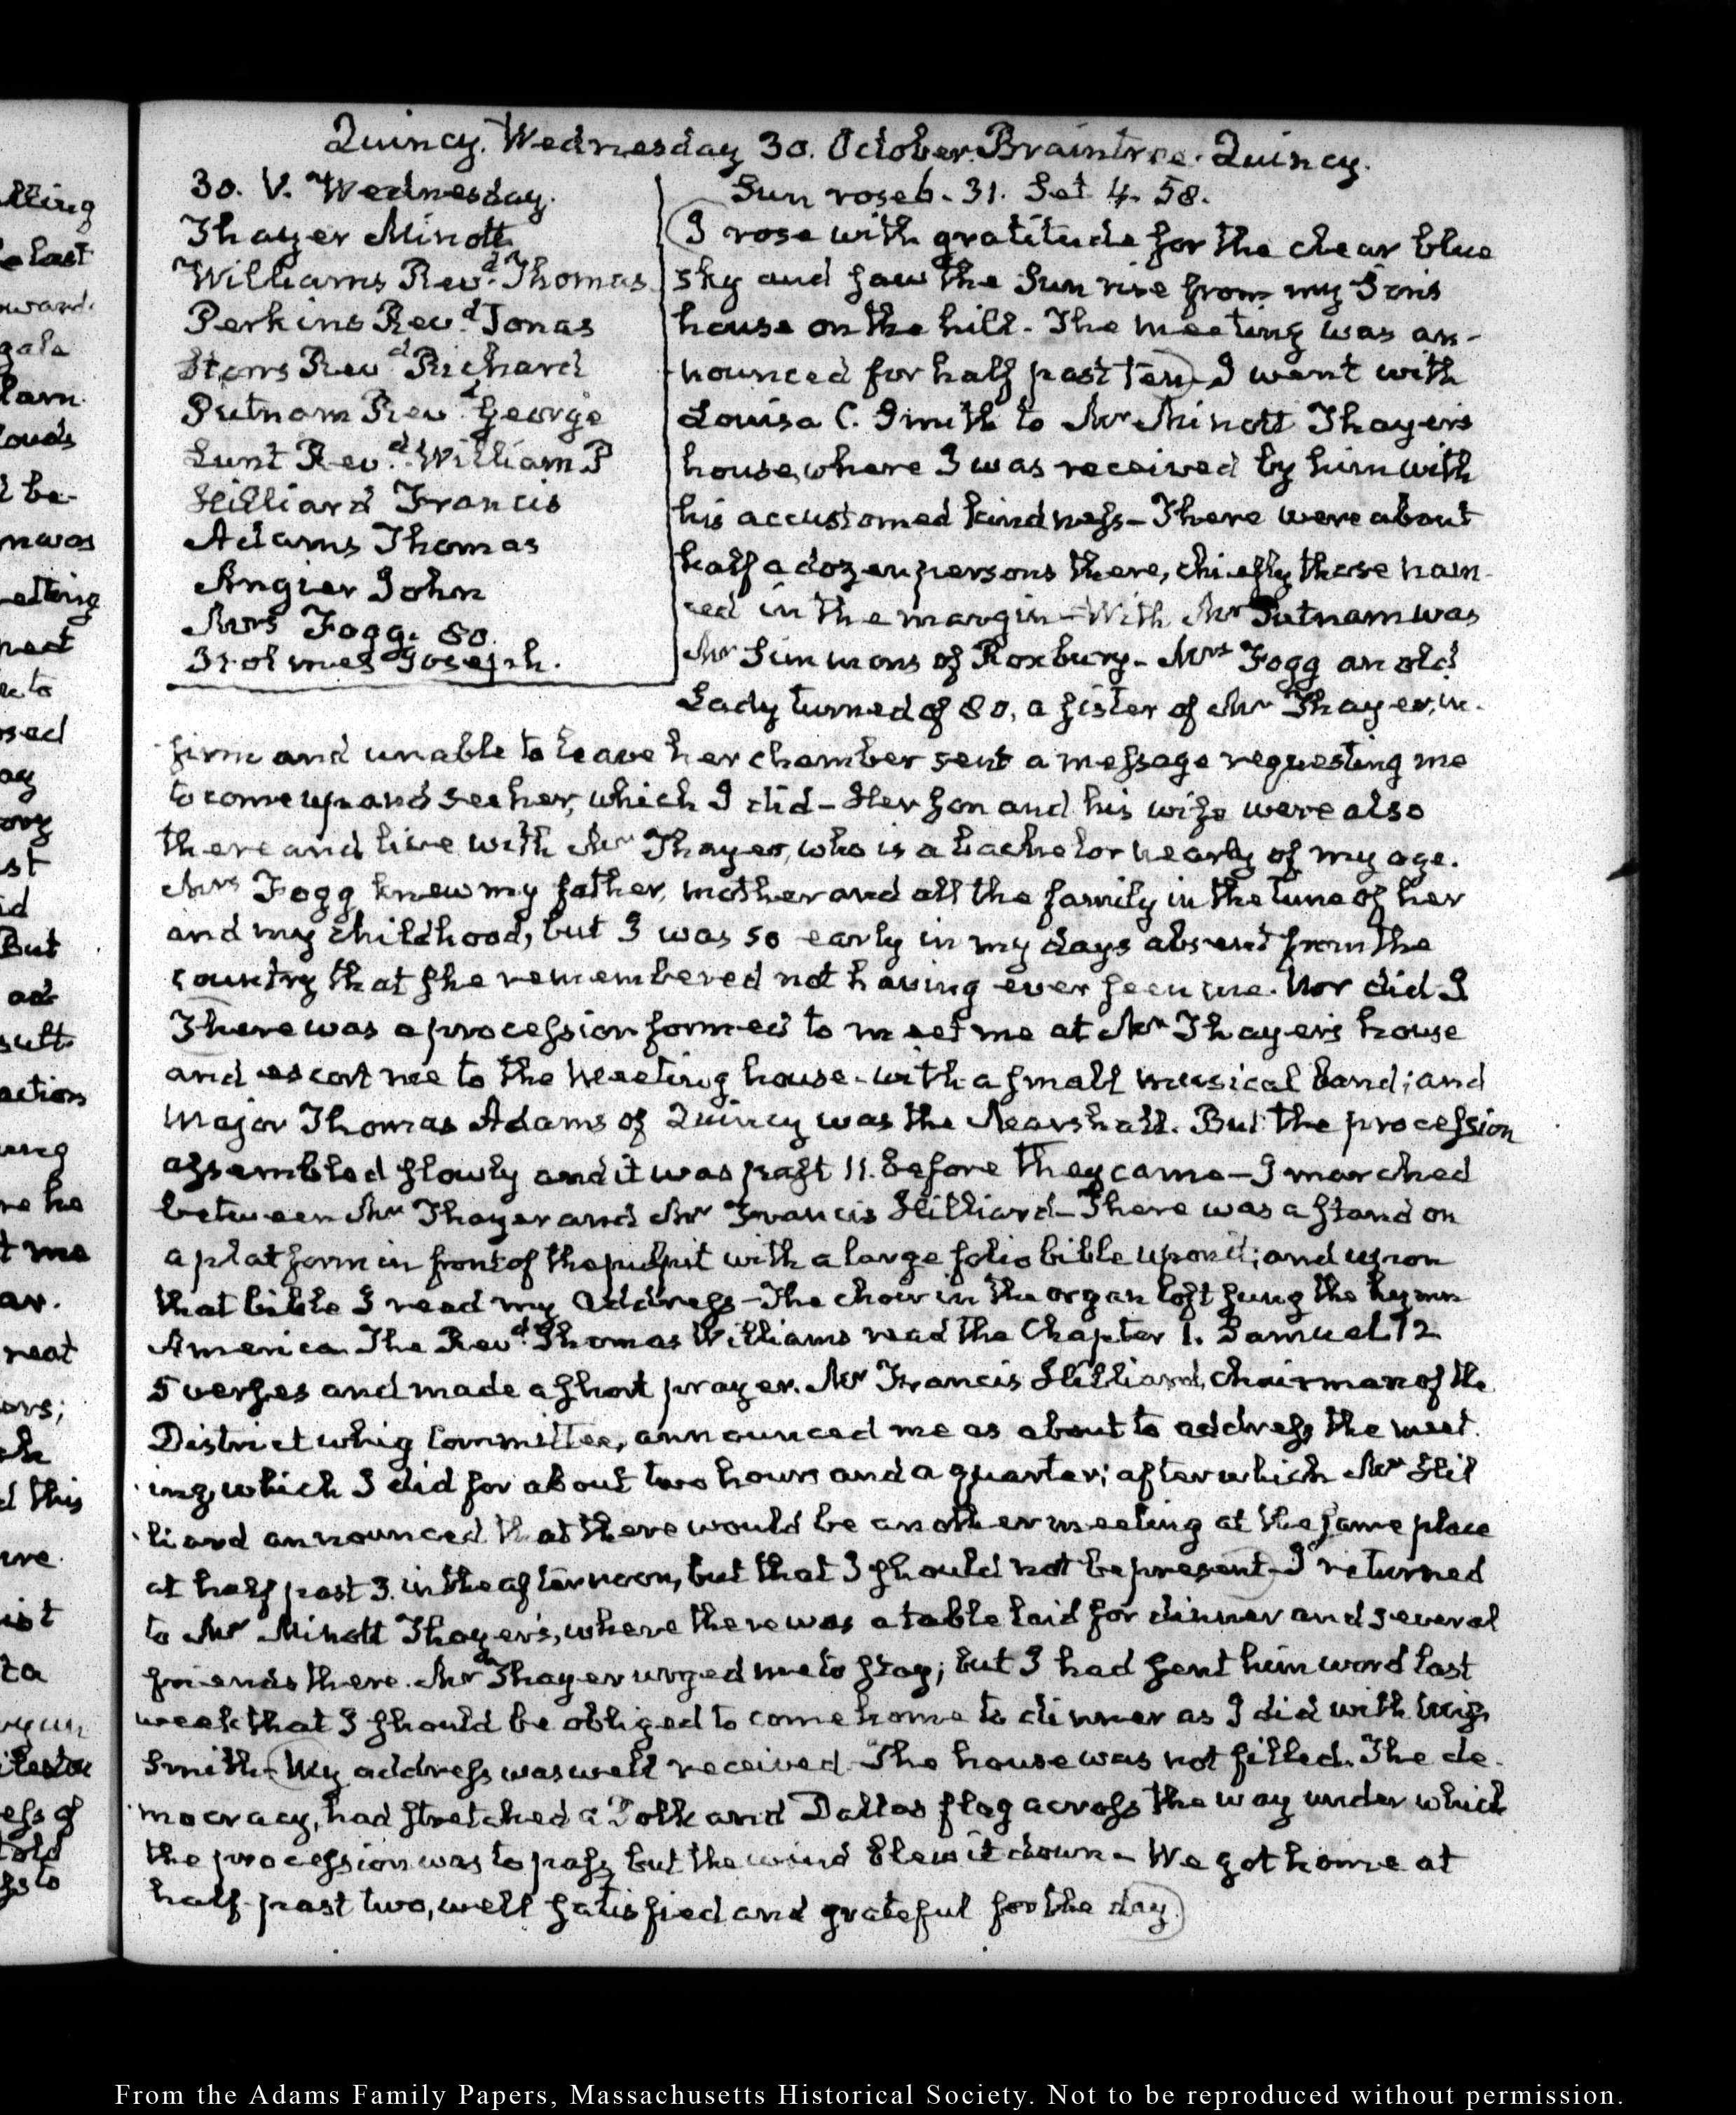 Quincy. Wednesday 30. October. Braintree. Quincy.
30. V. Wednesday.
Thayer Minott
Williams Revd. Thomas
Perkins Revd. Jonas
Storrs Revd Richard
Putnam Revd. George
Lunt Revd. William P
Hilliard Francis
Adams Thomas
Angier John
Mrs Fogg. 80.
Holmes Joseph.
Sun rose 6. 31. Set 4. 58.
I rose with gratitude for the clear blue
sky and saw the Sun rise from my Sons
house on the hill. The meeting was an-
nounced for half past ten- I went with
Louisa C. Smith to Mr Minott Thayer's
house, where I was received by him with
his accustomed kindness- There were about
half a dozen persons there, chiefly those nam-
ed in the margin- With Mr Putnam was
Mr Simmons of Roxbury- Mrs Fogg an old
Lady turned of 80, a sister of Mr Thayer, in-
firm and unable to leave her chamber sent a message requesting me
to come up and see her, which I did- Her son and his wife were also
there and live with Mr Thayer, who is a bachelor nearly of my age.
Mrs Fogg knew my father, mother and all the family in the time of her
and my childhood, but I was so early in my days absent from the
country that she remembered not having ever seen me. Nor did I
There was a procession formed to meet me at Mr Thayer's house
and escort me to the Meeting house- with a small musical band; and
Major Thomas Adams of Quincy was the Marshall. But the procession
assembled slowly and it was past 11. before they came- I marched
between Mr Thayer and Mr Francis Hilliard- There was a stand on
a platform in front of the pulpit with a large folio bible upon it; and upon
that bible I read my Address- The choir in the organ loft sung the hymn
America. The Revd. Thomas Williams read the Chapter 1. Samuel 12
5 verses and made a short prayer. Mr Francis Hilliard, chairman of the
District whig Committee, announced me as about to address the meet-
ing, which I did for about two hours and a quarter; after which Mr Hil
liard announced that there would be another meeting at the same place
at half past 3. in the afternoon, but that I should not be present- I returned
to Mr Minott Thayer's, where there was a table laid for dinner and several
friends there. Mr Thayer urged me to stay; but I had sent him word last
week that I should be obliged to come home to dinner as I did with
Smith- My address was well received- The house was not filled. The de-
mocracy, had stretched a Polk and Dallas flag across the way under which
the procession was to pass, but the wind blew it down- We got home at
half past two, well satisfied and grateful for the day.
From the Adams Family Papers, Massachusetts Historical Society. Not to be reproduced without permission.